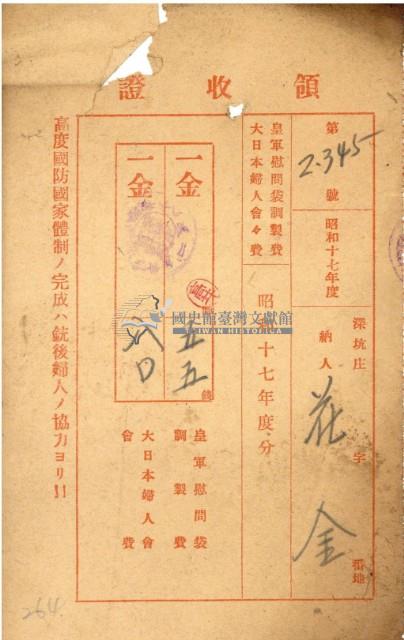 領收證
第 2.345 號
昭和十七年度
深坑庄 字 番地
納人 花 金
皇軍慰問袋調製費
大日本婦人會々費
昭和十七年度分
一金 五五 錢
皇軍慰問袋調製費
一金
大日本婦人會會費
高度國防國家體制ノ完成ハ銃後婦人ノ協力ヨリ!!
國史館臺灣文獻館
TAIWAN HISTORICA
264